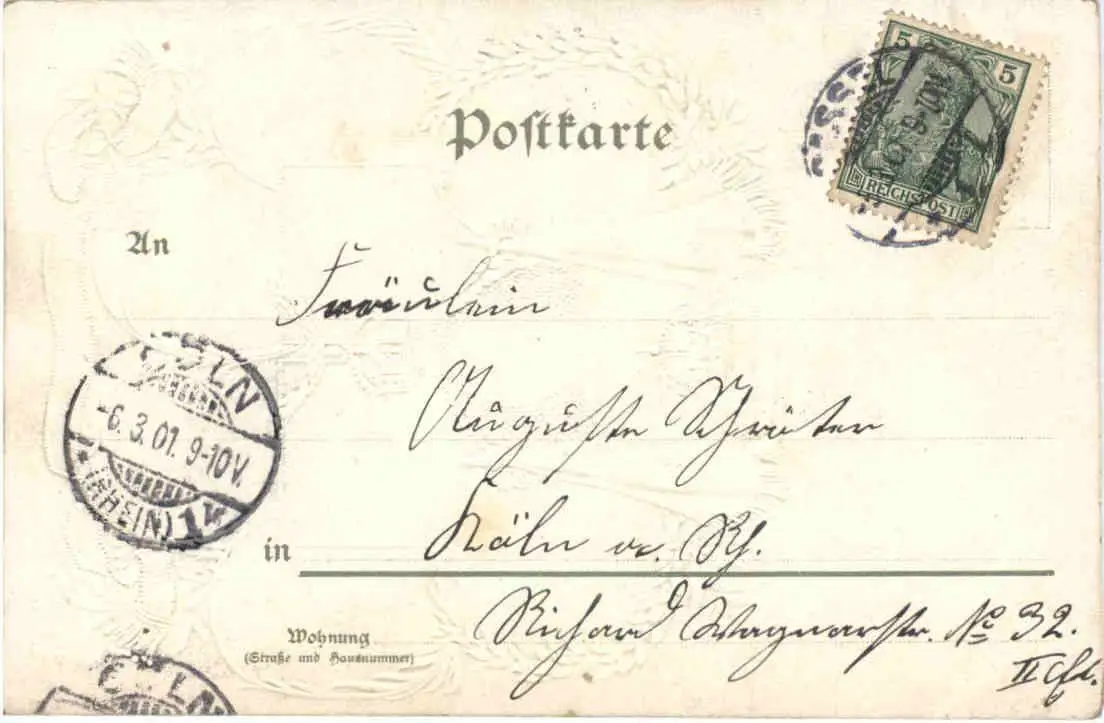 Postkarte
5 5
REICHSPOST
An
Fräulein
Auguste Schröter
CÖLN
-6.3.01. 9-10V.
(RHEIN) 1
in
Köln a. Rh.
Richard Wagnerstr. No 32.
II
Wohnung
(Straße und Hausnummer)
CÖLN